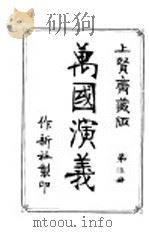 上賢齋藏版
萬國演義
第 冊
作新社製印
mtoou.info
mtoou.info